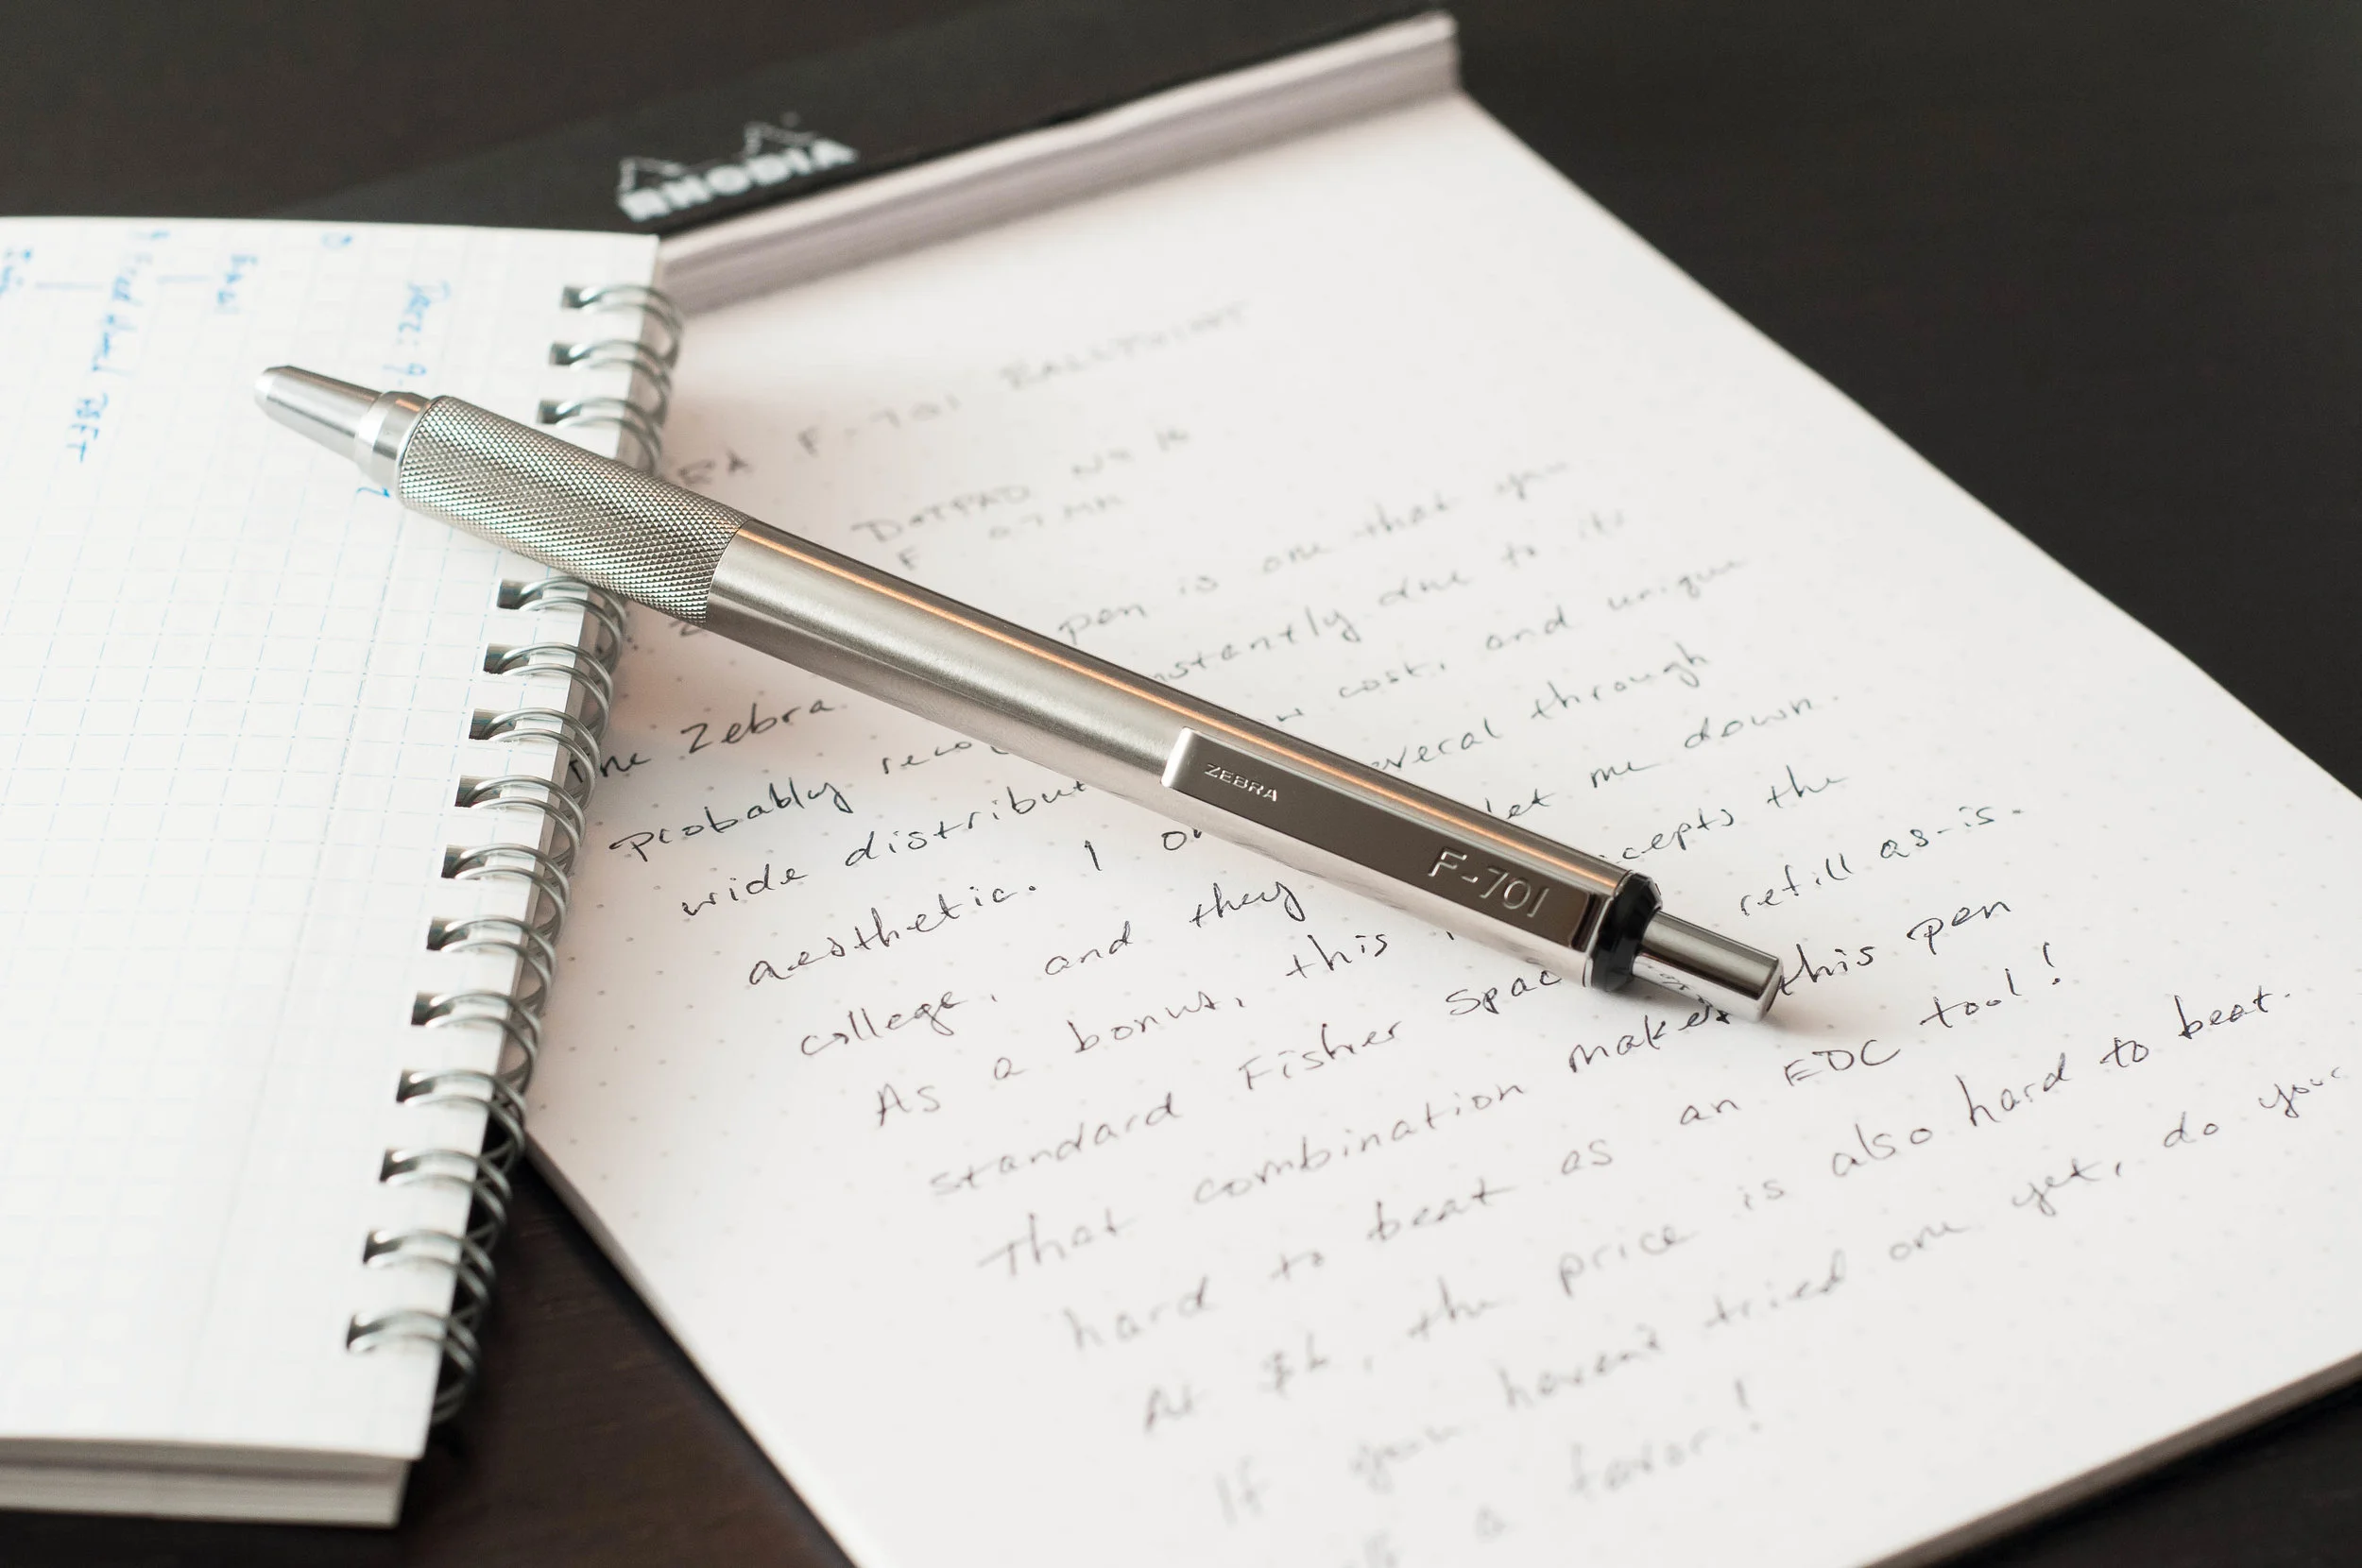 RHODIA
F-701 BALLPOINT
DOTPAD No 16
F 0.7 MM
The Zebra pen is one that you
probably due to its
wide cost, and unique
aesthetic. I through
college, and they let me down.
As a bonus, this the
standard Fisher refill as-is.
That combination makes this pen
hard to beat as an EDC tool!
At $6, the price is also hard to beat.
If you haven't tried one yet, do your
a favor!
ZEBRA
F-701